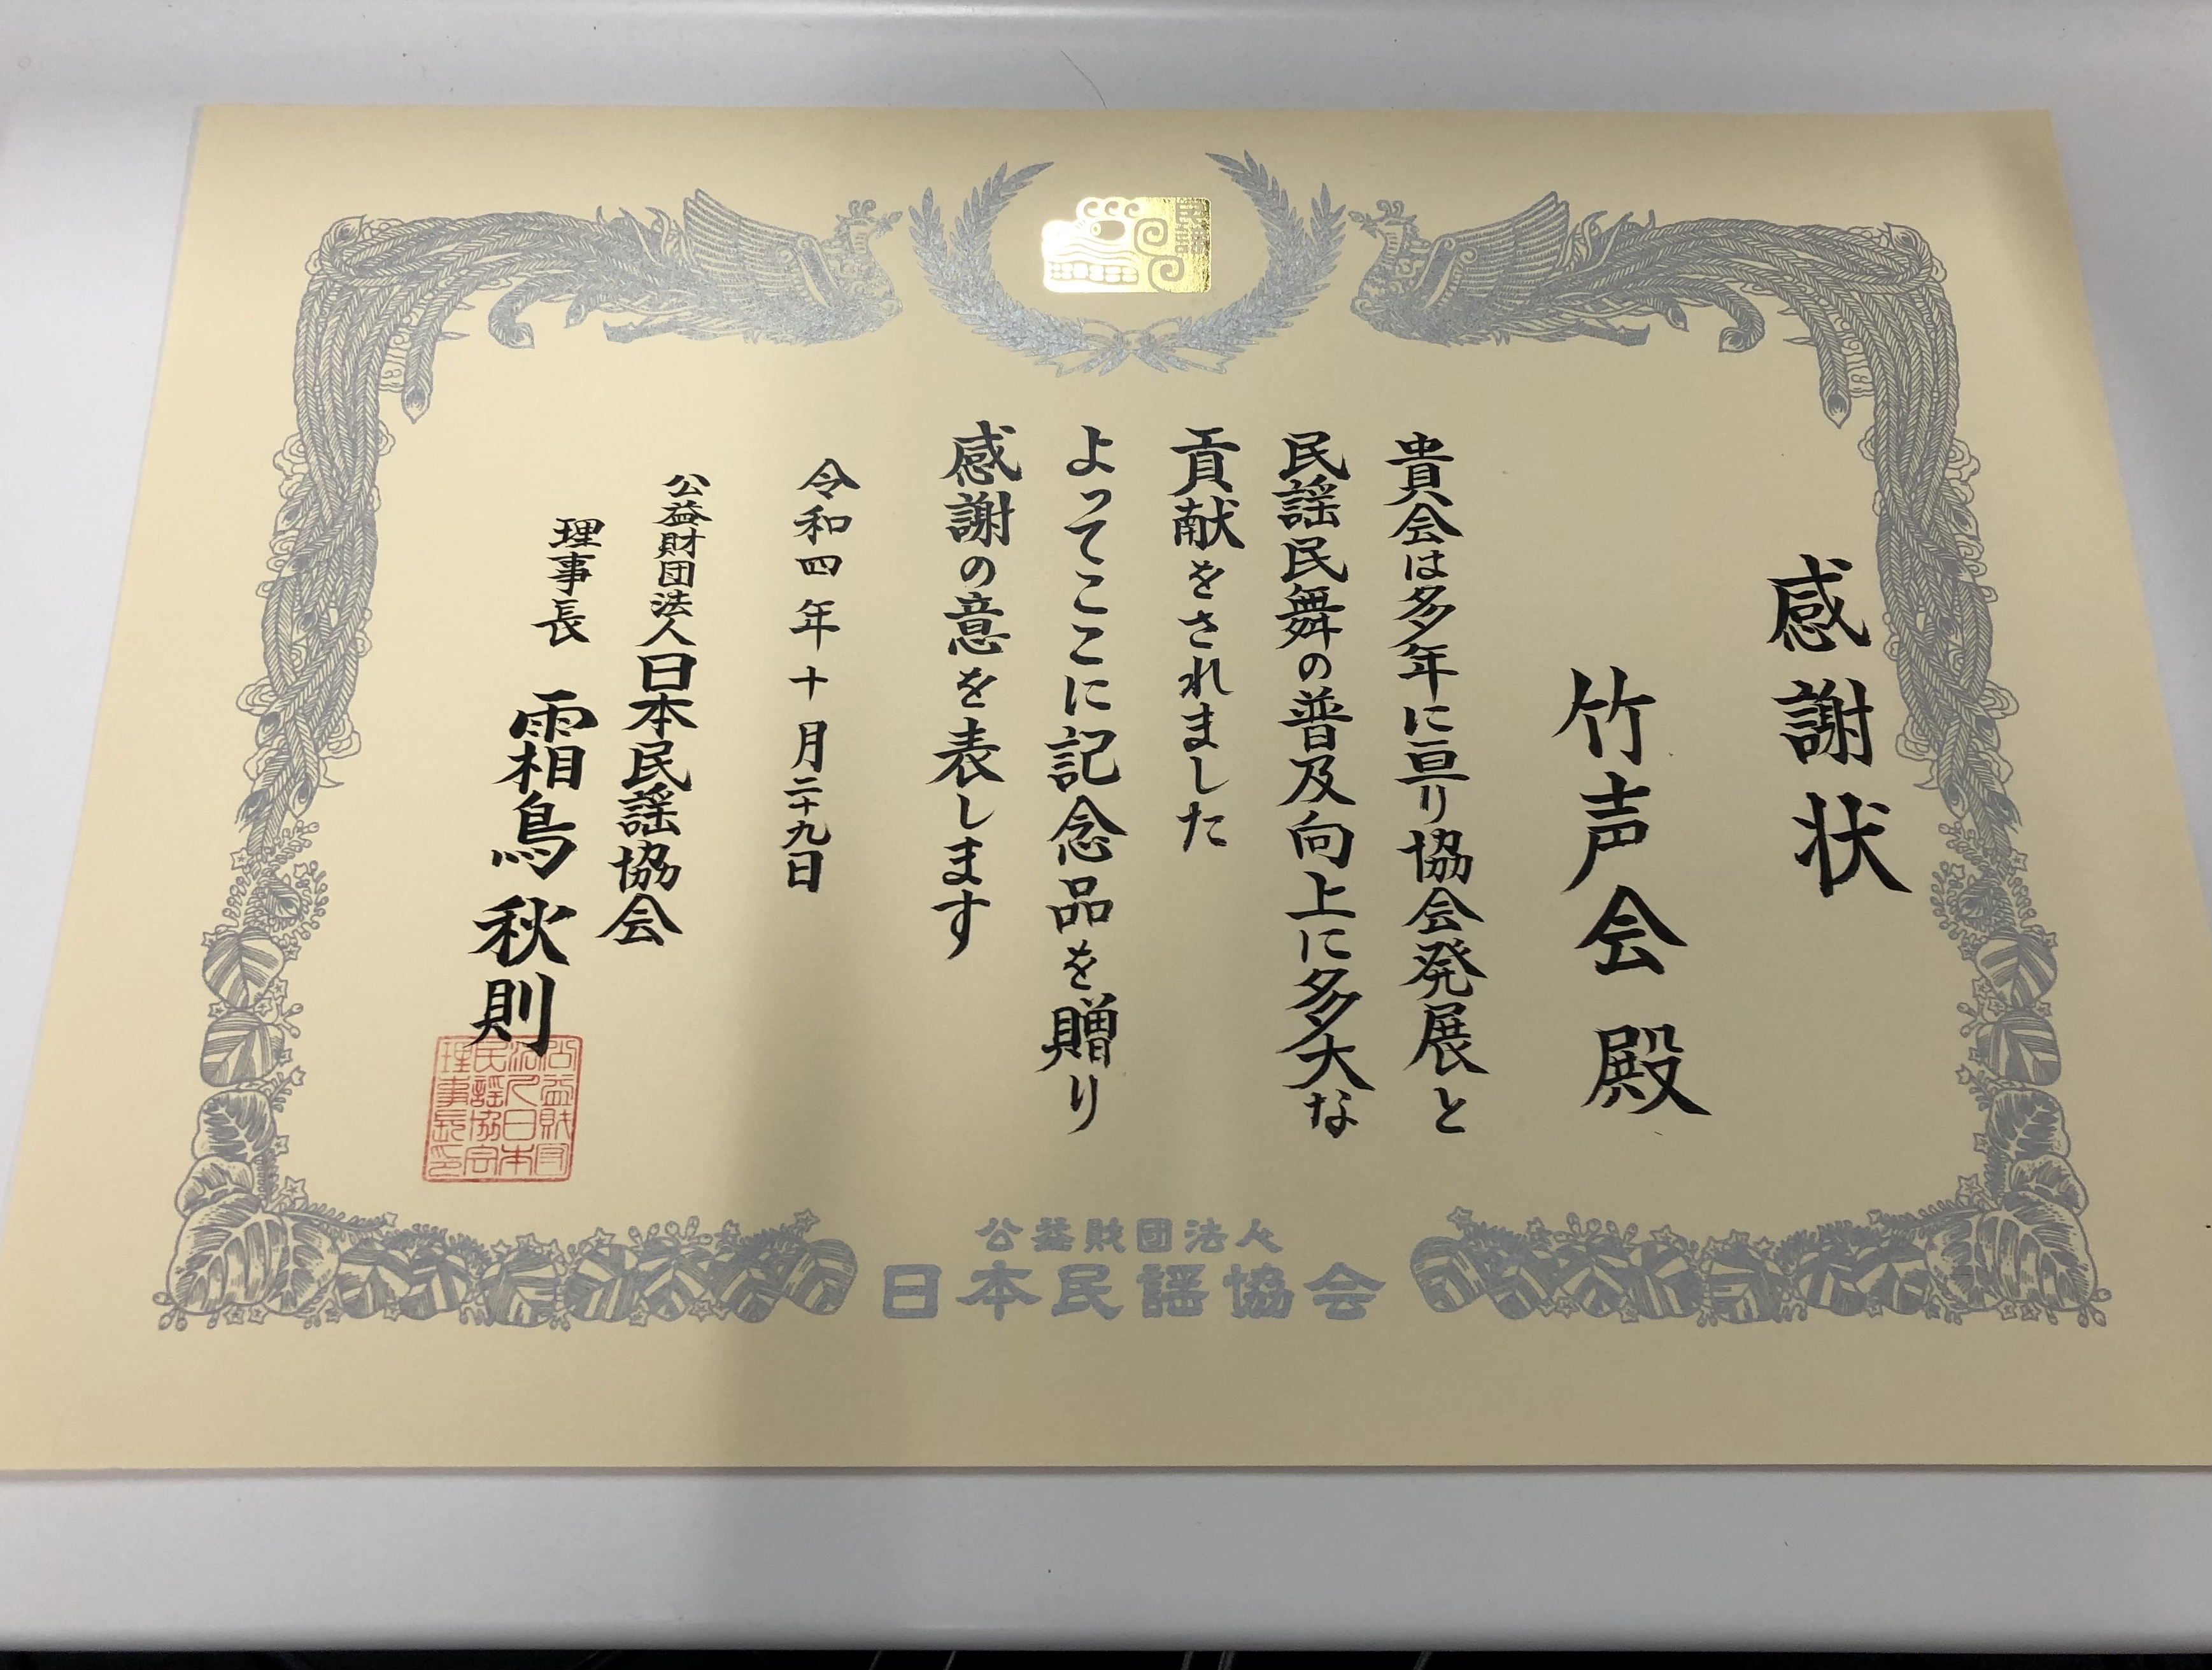 民謡
感謝状
竹声会 殿
貴会は多年に亘り協会発展と
民謡民舞の普及向上に多大な
貢献をされました
よってここに記念品を贈り
感謝の意を表します
令和四年十月二十九日
公益財団法人日本民謡協会
理事長 霜鳥秋則
公益財団
法人日本
民謡協会
理事長印
公益財団法人
日本民謡協会